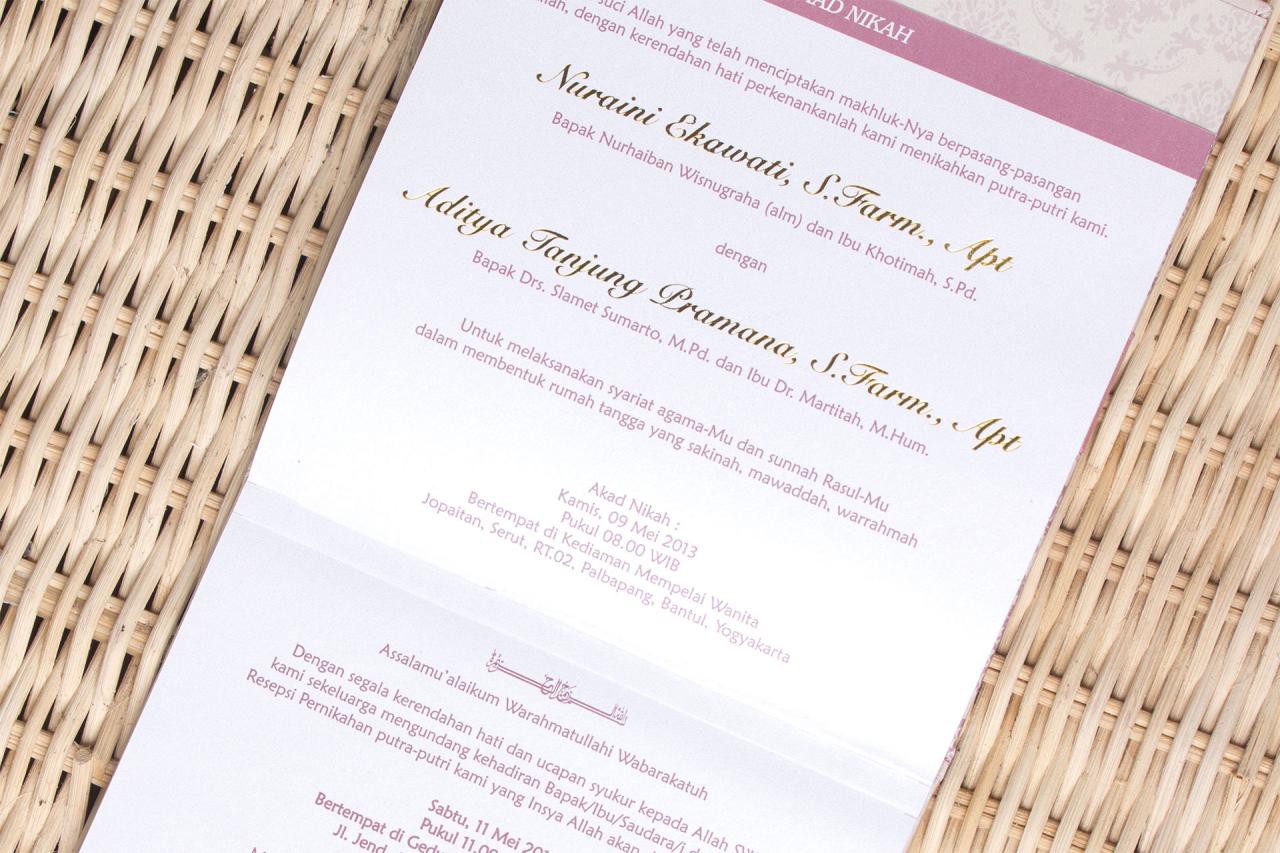 AD NIKAH
suci Allah yang telah menciptakan makhluk-Nya berpasang-pasangan
dengan kerendahan hati perkenankanlah kami menikahkan putra-putri kami.
Nuraini Ekawati, S.Farm., Apt
Bapak Nurhaiban Wisnugraha (alm) dan Ibu Khotimah, S.Pd.
dengan
Aditya Tanjung Pramana, S.Farm., Apt
Bapak Drs. Slamet Sumarto, M.Pd. dan Ibu Dr. Martitah, M.Hum.
Untuk melaksanakan syariat agama-Mu dan sunnah Rasul-Mu
dalam membentuk rumah tangga yang sakinah, mawaddah, warrahmah
Akad Nikah :
Kamis, 09 Mei 2013
Pukul 08.00 WIB
Bertempat di Kediaman Mempelai Wanita
Jopaitan, Serut, RT.02, Palbapang, Bantul, Yogyakarta
Assalamu'alaikum Warahmatullahi Wabarakatuh
Dengan segala kerendahan hati dan ucapan syukur kepada Allah
kami sekeluarga mengundang kehadiran Bapak/Ibu/Saudara/i
Resepsi Pernikahan putra-putri kami yang Insya Allah akan
Sabtu, 11 Mei
Pukul 11.00
Bertempat di
Jl.